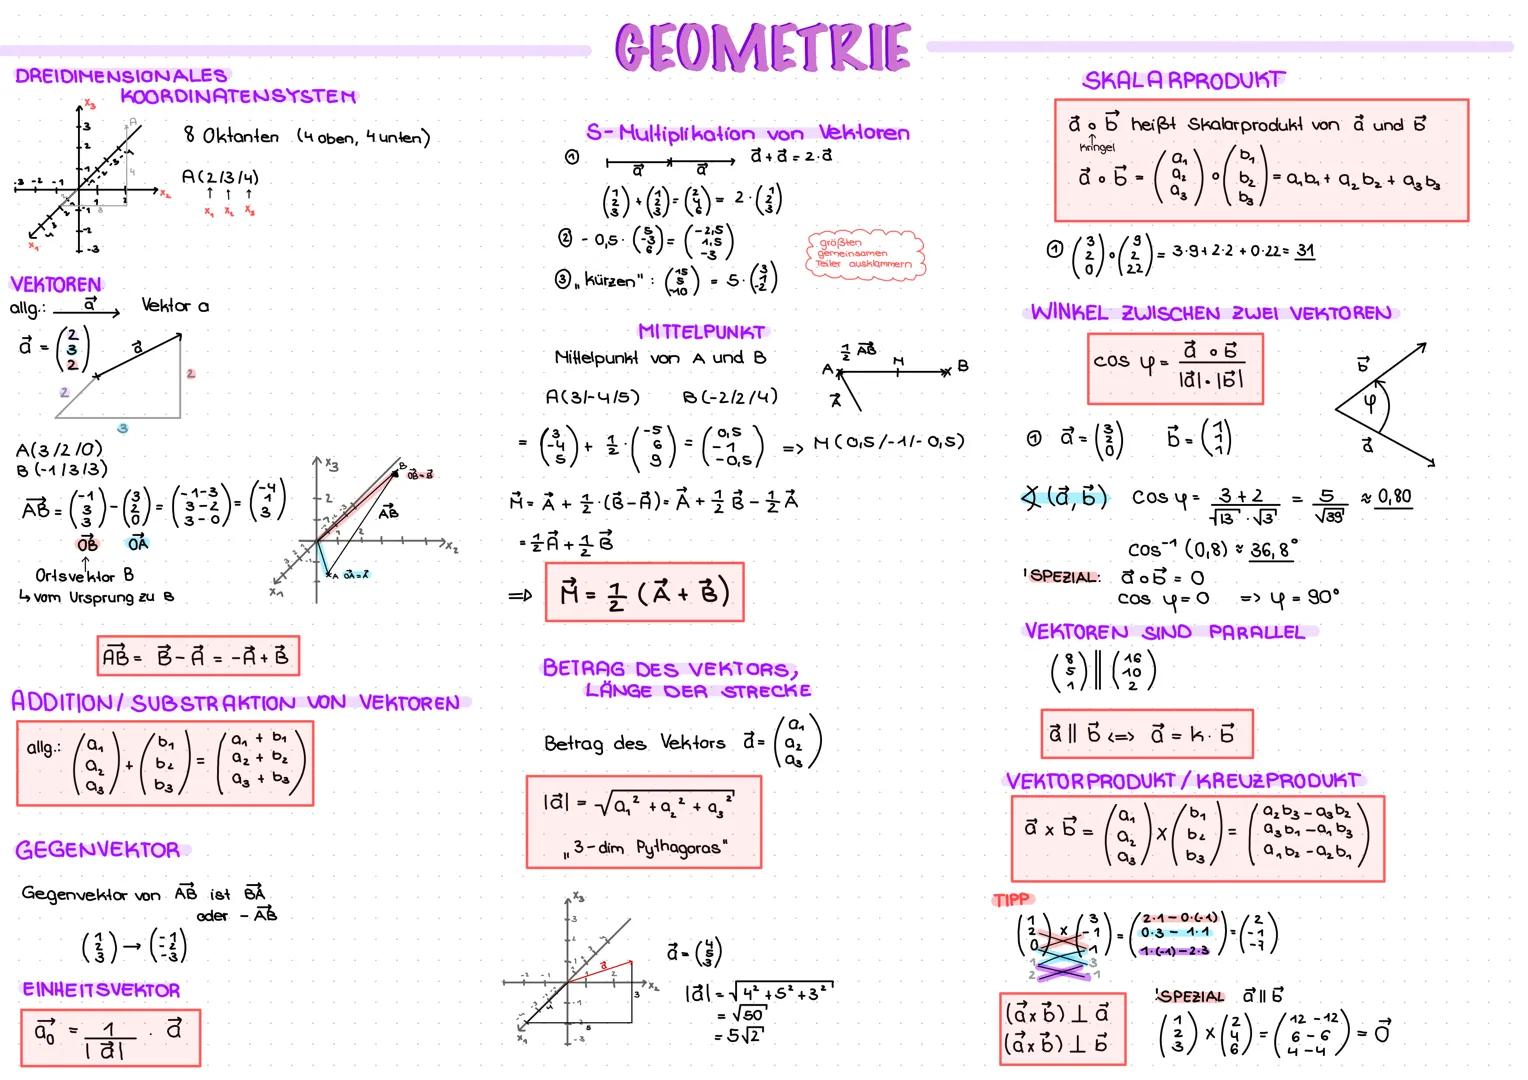 GEOMETRIE
DREIDIMENSIONALES
KOORDINATENSYSTEM
8 Oktanten (4 oben, 4 unten)
A(2/3/4)
↑ ↑ ↑
x₁ x₂ x₃
VEKTOREN
allg.: a⃗ Vektor a
a⃗ = (2 3 2)
2
3
2
A(3/2/0)
B(-1/3/3)
AB⃗ = (-1 3 3) - (3 2 0) = (-1-3 3-2 3-0) = (-4 1 3)
OB⃗ OA⃗
Ortsvektor B
↳ vom Ursprung zu B
x₃
B OB⃗=B⃗
AB⃗
x₂
A OA⃗=A⃗
x₁
AB⃗ = B⃗ - A⃗ = -A⃗ + B⃗
ADDITION/SUBSTRAKTION VON VEKTOREN
allg.: (a₁ a₂ a₃) + (b₁ b₂ b₃) = (a₁ + b₁ a₂ + b₂ a₃ + b₃)
GEGENVEKTOR
Gegenvektor von AB⃗ ist BA⃗
oder - AB⃗
(1 2 3) → (-1 -2 -3)
EINHEITSVEKTOR
a₀⃗ = 1/|a⃗| · a⃗
S-Multiplikation von Vektoren
① a⃗ a⃗ a⃗ + a⃗ = 2·a⃗
(1 2 3) + (1 2 3) = (2 4 6) = 2·(1 2 3)
② -0,5·(5 -3 6) = (-2,5 1,5 -3)
③ „kürzen": (15 5 -10) = 5·(3 1 -2)
größten
gemeinsamen
Teiler ausklammern
MITTELPUNKT
Mittelpunkt von A und B
A(3/-4/5) B(-2/2/4)
½ AB⃗
A M B
A⃗
= (3 -4 5) + ½·(-5 6 9) = (0,5 -1 -0,5) => M(0,5/-1/-0,5)
M⃗ = A⃗ + ½·(B⃗-A⃗) = A⃗ + ½ B⃗ - ½ A⃗
= ½ A⃗ + ½ B⃗
=> M⃗ = ½ (A⃗ + B⃗)
BETRAG DES VEKTORS,
LÄNGE DER STRECKE
Betrag des Vektors a⃗ = (a₁ a₂ a₃)
|a⃗| = √(a₁² + a₂² + a₃²)
„3-dim Pythagoras"
x₃
a⃗
x₂
3
5
x₁
a⃗ = (4 5 3)
|a⃗| = √(4² + 5² + 3²)
= √50
= 5√2
SKALARPRODUKT
a⃗ ∘ b⃗ heißt Skalarprodukt von a⃗ und b⃗
↑
Kringel
a⃗ ∘ b⃗ = (a₁ a₂ a₃) ∘ (b₁ b₂ b₃) = a₁b₁ + a₂b₂ + a₃b₃
① (3 2 0) ∘ (9 2 22) = 3·9+2·2+0·22= 31
WINKEL ZWISCHEN ZWEI VEKTOREN
cos φ = a⃗ ∘ b⃗ / |a⃗|·|b⃗|
b⃗
φ
a⃗
① a⃗ = (3 2 0) b⃗ = (1 1 1)
∢(a⃗,b⃗) cos φ = 3+2 / √13·√3 = 5/√39 ≈ 0,80
cos⁻¹ (0,8) ≈ 36,8°
! SPEZIAL: a⃗ ∘ b⃗ = 0
cos φ = 0 => φ = 90°
VEKTOREN SIND PARALLEL
(8 5 1) || (16 10 2)
a⃗ || b⃗ <=> a⃗ = k·b⃗
VEKTORPRODUKT/KREUZPRODUKT
a⃗ × b⃗ = (a₁ a₂ a₃) × (b₁ b₂ b₃) = (a₂b₃-a₃b₂ a₃b₁-a₁b₃ a₁b₂-a₂b₁)
TIPP
(1 2 0) × (3 -1 1) = (2·1-0·(-1) 0·3-1·1 1·(-1)-2·3) = (2 -1 -7)
1 3
2 -1
(a⃗×b⃗) ⊥ a⃗
(a⃗×b⃗) ⊥ b⃗
! SPEZIAL a⃗ || b⃗
(1 2 3) × (2 4 6) = (12-12 6-6 4-4) = 0⃗